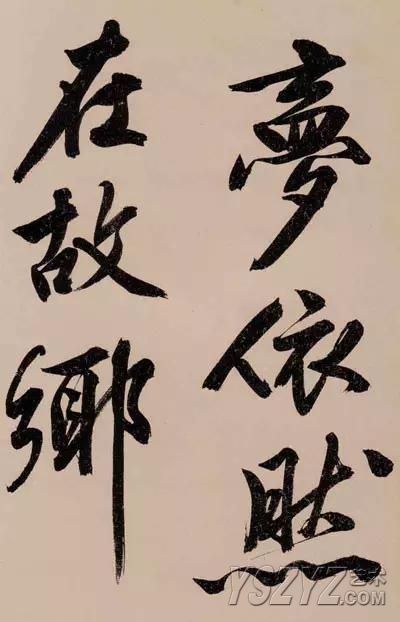 夢依然
在故鄉
YSZYZ艺术
.COM